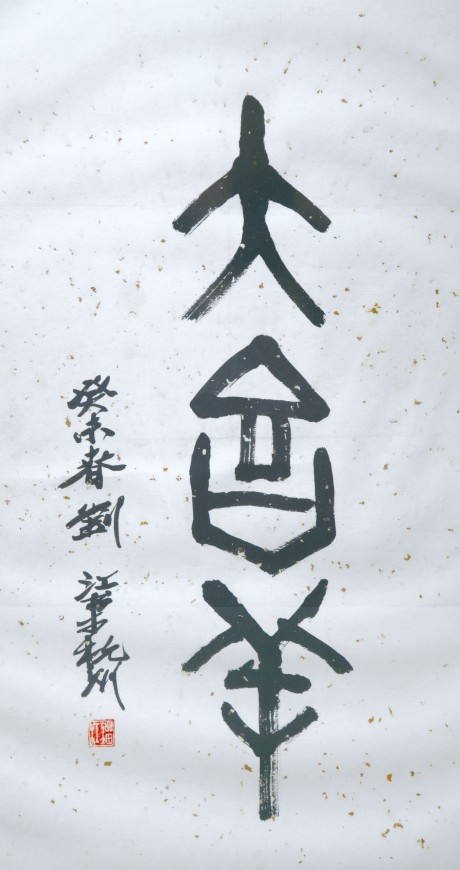 大吉羊
癸未春劉江杭州